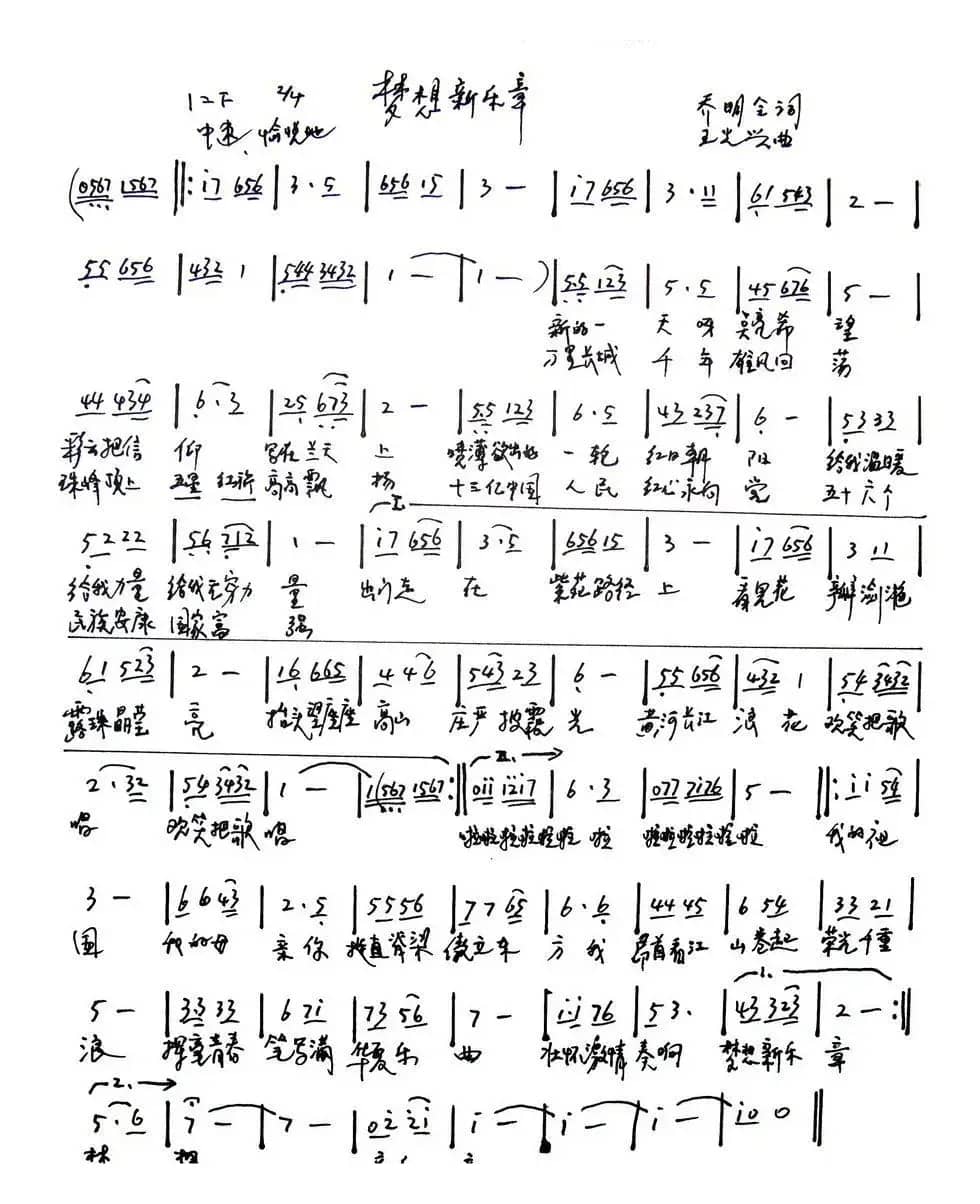 梦想新乐章
1=F 2/4
乔明全词
中速 愉悦地
王光兴曲
(0567 1567 ‖: i7 656 | 3 · 5 | 656 15 | 3 — | i7 656 | 3 · 11 | 61 543 | 2 — |
55 656 | 432 1 | 544 3432 | 1 — | 1 — ) | 55 123 | 5 · 5 | 45 676 | 5 — |
新的一 天 呀 希 望
万里长城 千 年 雄风回 荡
44 434 | 6 · 3 | 25 673 | 2 — | 55 123 | 6 · 5 | 43 237 | 6 — | 53 33 |
彩云把信 仰 写在兰天 上 一 轮 红日朝 阳 给我温暖
珠峰顶上 五星 红旗 高高飘 扬 十三亿中国 人 民 红心永向 党 五十六个
I.
52 22 | 56 712 | 1 — | i7 656 | 3 · 5 | 656 15 | 3 — | i7 656 | 3 11 |
给我力量 给我无穷力 量 出门走 在 紫花路径 上 看见花 瓣
民族安康 国家富 强
61 523 | 2 — | 16 665 | 4 46 | 543 23 | 6 — | 55 656 | 432 1 | 54 3432 |
露珠晶莹 亮 抬头望座座 高山 庄严披霞 光 黄河长江 浪 花 欢笑把歌
II.
2 · 32 | 54 3432 | 1 — | 1(567 1567 :‖ 0ii i2i7 | 6 · 3 | 077 7i76 | 5 — ‖: ii 54 |
唱 欢笑把歌 唱 啦啦啦啦啦啦 啦 啦啦啦啦啦啦 我的祖
3 — | 66 43 | 2 · 5 | 55 56 | 77 65 | 6 · 6 | 44 45 | 6 54 | 33 21 |
国 我的母 亲 你 挺直脊梁 傲立东 方 我 昂首看江 山 卷起 荣光千重
1.
5 — | 33 33 | 6 7i | 73 56 | 7 — | ii 76 | 53 · | 43 323 | 2 — :‖
浪 挥毫青春 笔 写满 华夏乐 曲 壮怀激情 奏啊 梦想新乐 章
2.
5 · 6 | 7 — | 7 — | 02 2i | i — | i — | i — | i0 0 ‖